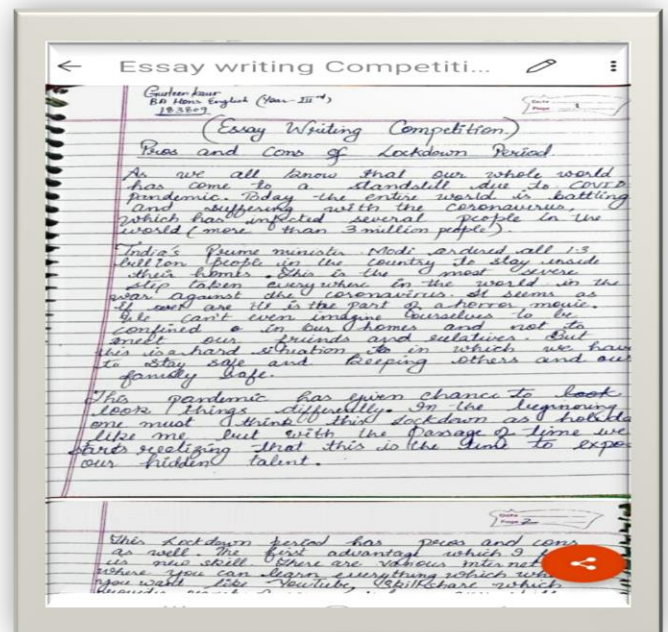 Essay writing Competiti...
Gurleen kaur
BA Hons English (Year-IIIrd)
183809
Date
Page 1
(Essay Writing Competition)
Pros and Cons of Lockdown Period
As we all know that our whole world
has come to a standstill due to COVID
pandemic. Today the entire world is battling
and suffering with the coronavirus.
which has infected several people in the
world (more than 3 million people).
India's Prime minister Modi ordered all 1.3
billion people in the country to stay inside
their homes. This is the most severe
step taken everywhere in the world in the
war against the coronavirus. It seems as
if are it is the part of a horror movie.
We can't even imagine ourselves to be
confined in our homes and not to
meet our friends and relatives. But
this is a hard situation in which we have
to stay safe and keeping others and our
family safe.
This pandemic has given chance to look
look things differently. In the beginnoing
one must think this lockdown as holida
like me but with the passage of time we
starts realizing that this is the time to expo
our hidden talent.
Date
Page 2
This Lockdown period has pros and cons
as well. The first advantage which I
us new skill. There are various internet
where you can learn everything which
you want like YouTube, Skillshare which